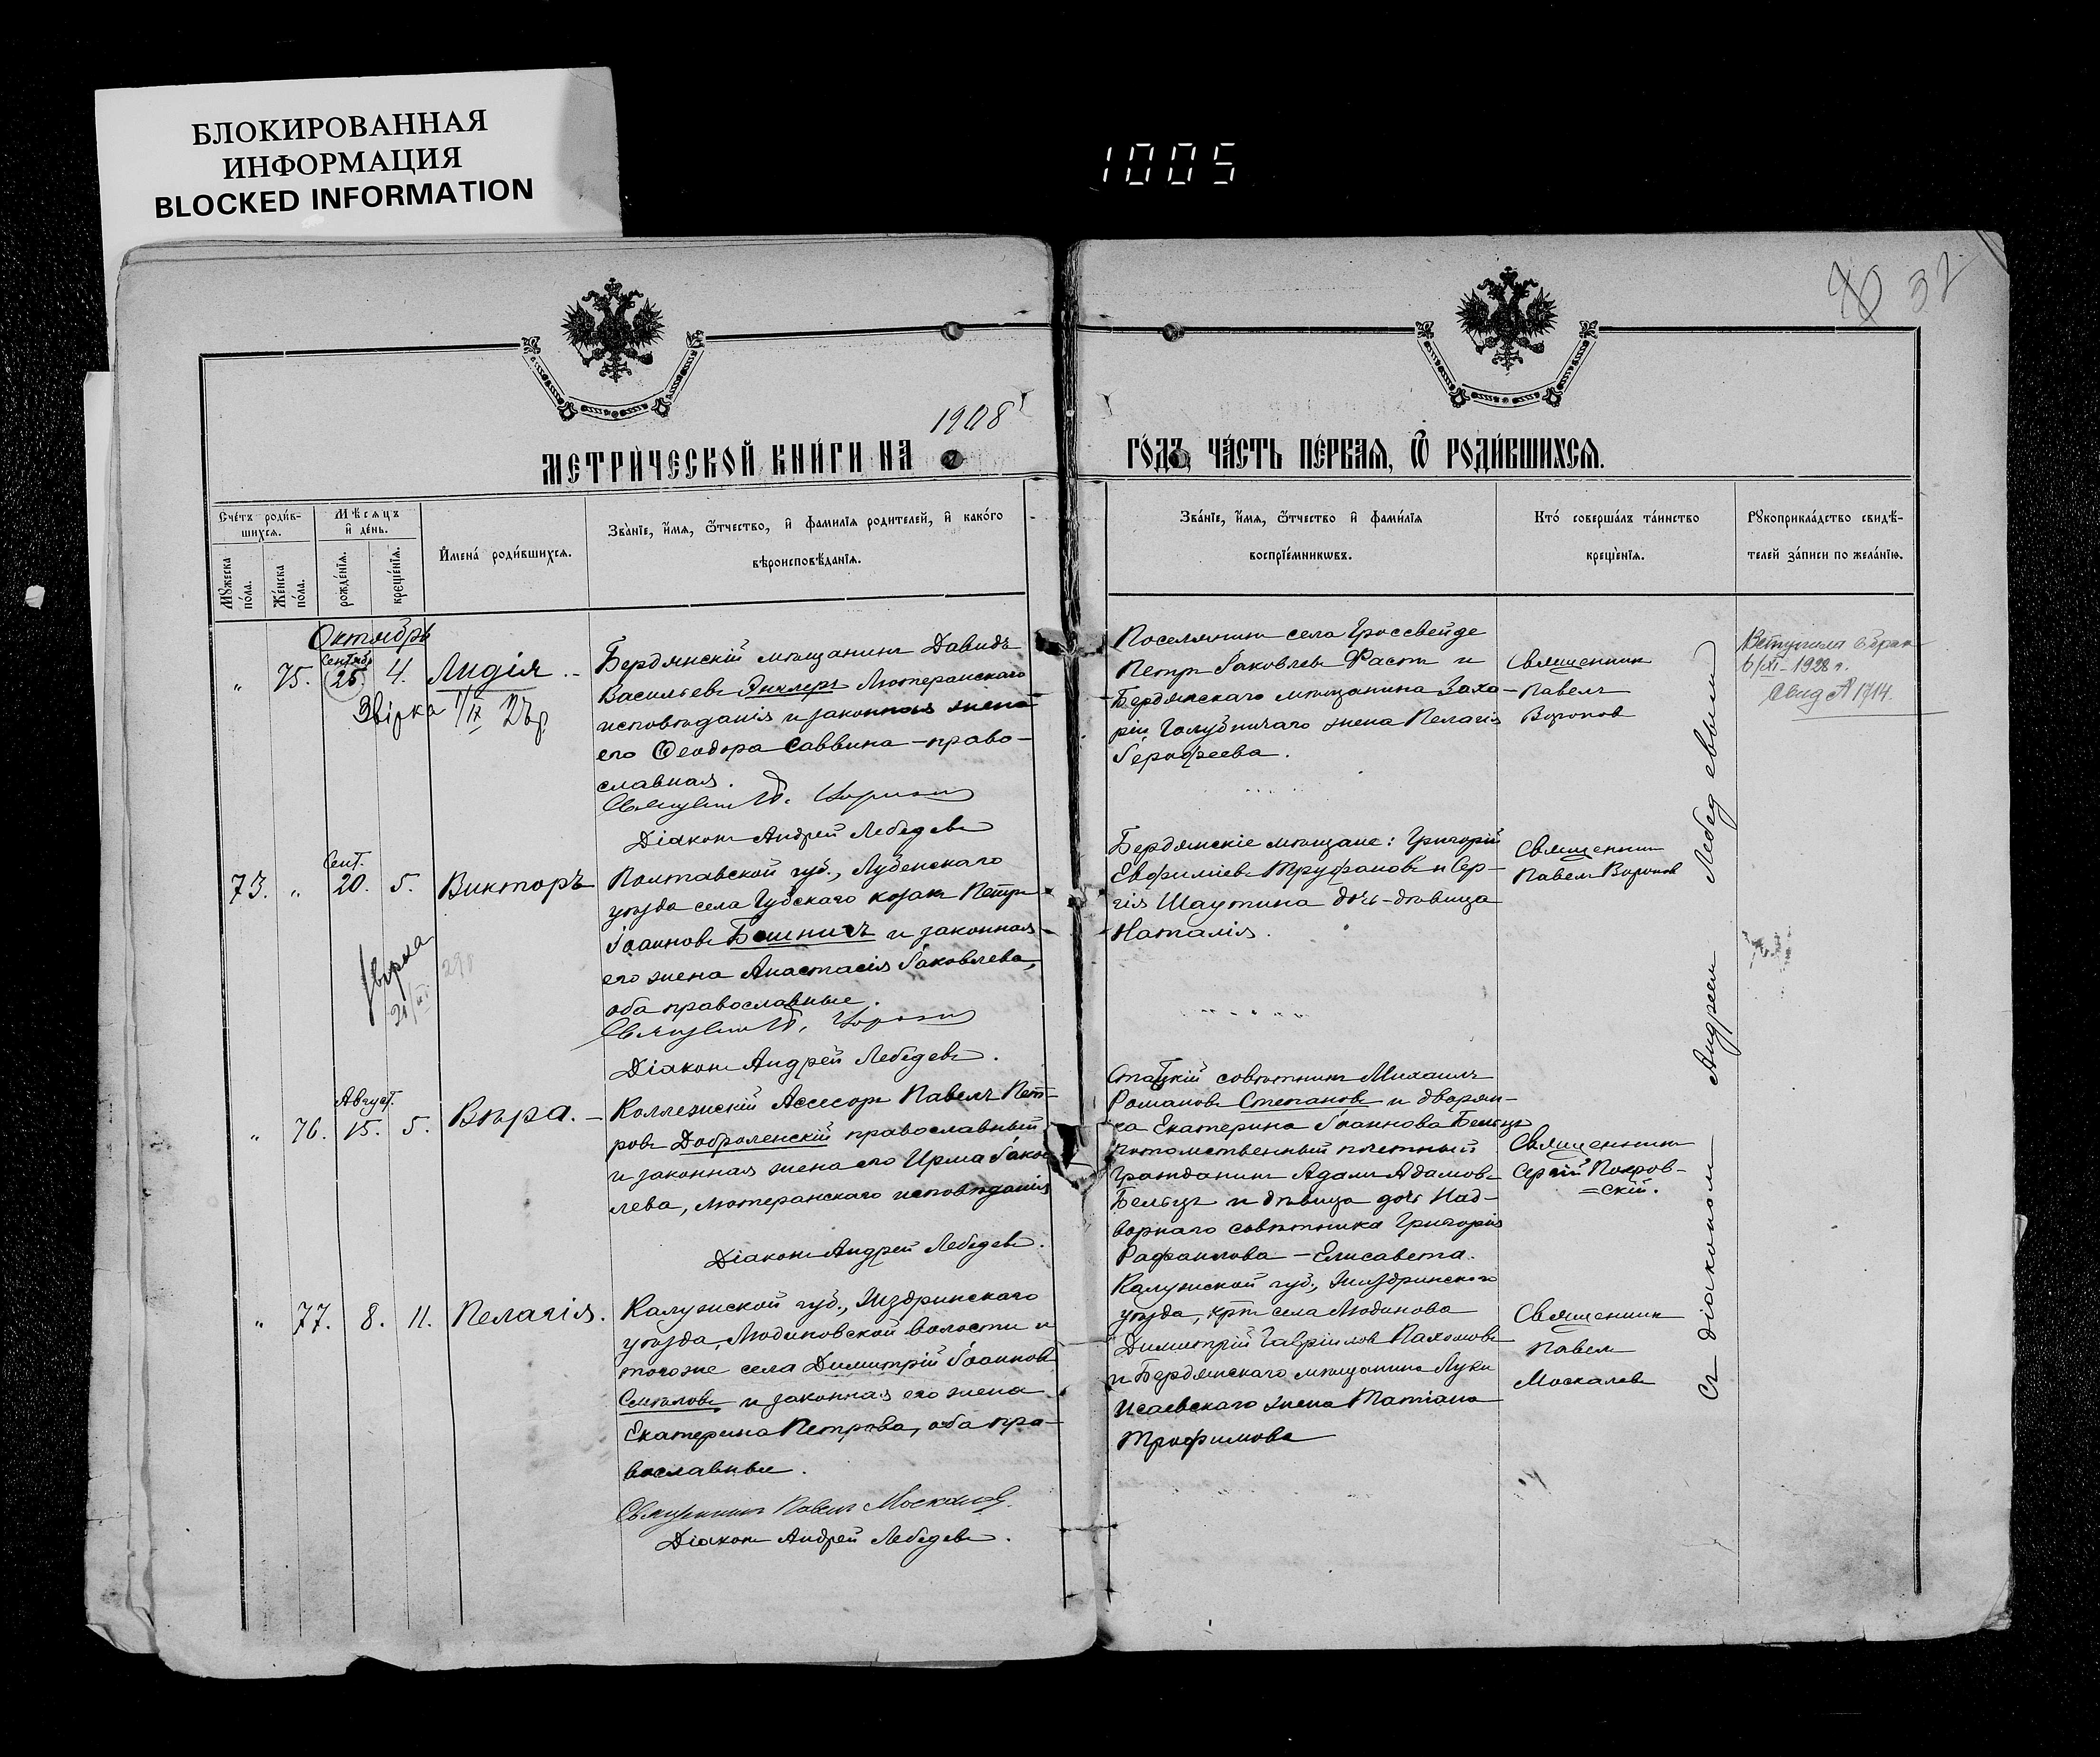 БЛОКИРОВАННАЯ
ИНФОРМАЦИЯ
BLOCKED INFORMATION
1005
32
1908
МЕТРИ́ЧЕСКОЙ КНИ́ГИ НА
ГО́ДЪ, ЧА́СТЬ ПЕ́РВАЯ, Ѿ РОДИ́ВШИХСЯ.
Сче́тъ роди́в-
шихся.
Мѣ́сяцъ
и҆ де́нь.
Мꙋжеска
по́ла.
Же́нска
по́ла.
рожде́нїя.
креще́нїя.
И҆мена́ роди́вшихся.
Зва́нїе, и҆́мя, ѻ҆́тчество, и҆ фами́лїя роди́телей, и҆ како́гѡ
вѣроисповѣ́данїя.
Зва́нїе, и҆́мя, ѻ҆́тчество и҆ фами́лїя
воспрїе́мникѡвъ.
Кто́ соверша́лъ та́инство
креще́нїя.
Рꙋкоприкла́дство свидѣ́-
телей за́писи по жела́нїю.
Октябрь
" 75. Сентяб. 25 4. Лидія.
Звірка 1/IX
Бердянскій мѣщанинъ Давидъ
Васильевъ Лютеранскаго
исповѣданія и законная жена
его Ѳеодора Саввина - право-
славная.
Діаконъ Андрей Лебедевъ
Поселянинъ села Гроссвейде
Петръ Іаковлевъ Фастъ и
Бердянскаго мѣщанина Заха-
рія Голубничаго жена Пелагія
Іероѳеева.
Священникъ
Павелъ
Воронов
Вступила в брак
6/XI-1928 г.
Свид № 1714.
73. " Сент. 20. 5. Викторъ
Звірка
21/III
298
Полтавской губ., Лубенскаго
уѣзда села Губскаго козакъ Петръ
Іоанновъ и законная
его жена Анастасія Іаковлева,
оба православные.
Діаконъ Андрей Лебедевъ.
Бердянскіе мѣщане: Григорій
Евфиміевъ Труфановъ и Сер-
гія Шаутина дочь-дѣвица
Наталія.
Священникъ
Павелъ Воронов
" 76. Август. 15. 5. Вѣра.
Коллежскій Ассесоръ Павелъ Пет-
ровъ Доброленскій православный
и законная жена его Ирма Іаков
лева, лютеранскаго исповѣданія
Діаконъ Андрей Лебедевъ.
Статскій совѣтникъ Михаилъ
Романовъ Степановъ и дворян-
ка Екатерина Іоаннова Бельцъ
потомственный почетный
гражданинъ Адамъ Адамовъ
Бельцъ и дѣвица дочь Над-
ворнаго совѣтника Григорія
Рафаилова - Елисавета.
Священникъ
Сергій Покров-
=скій.
" 77. 8. 11. Пелагія.
Калужской губ., Жиздринскаго
уѣзда, Людиновской волости и
того же села Димитрій Іоанновъ
и законная его жена
Екатерина Петрова, оба пра-
вославные.
Священникъ Павелъ Москалев.
Діаконъ Андрей Лебедевъ.
Калужской губ., Жиздринскаго
уѣзда, крт. села Людинова
Димитрій Гавріиловъ Пахомовъ
и Бердянскаго мѣщанина Луки
Исаевскаго жена Татіана
Трофимова
Священникъ
Павелъ
Москалевъ
Съ діакономъ Андреем Лебедевымъ